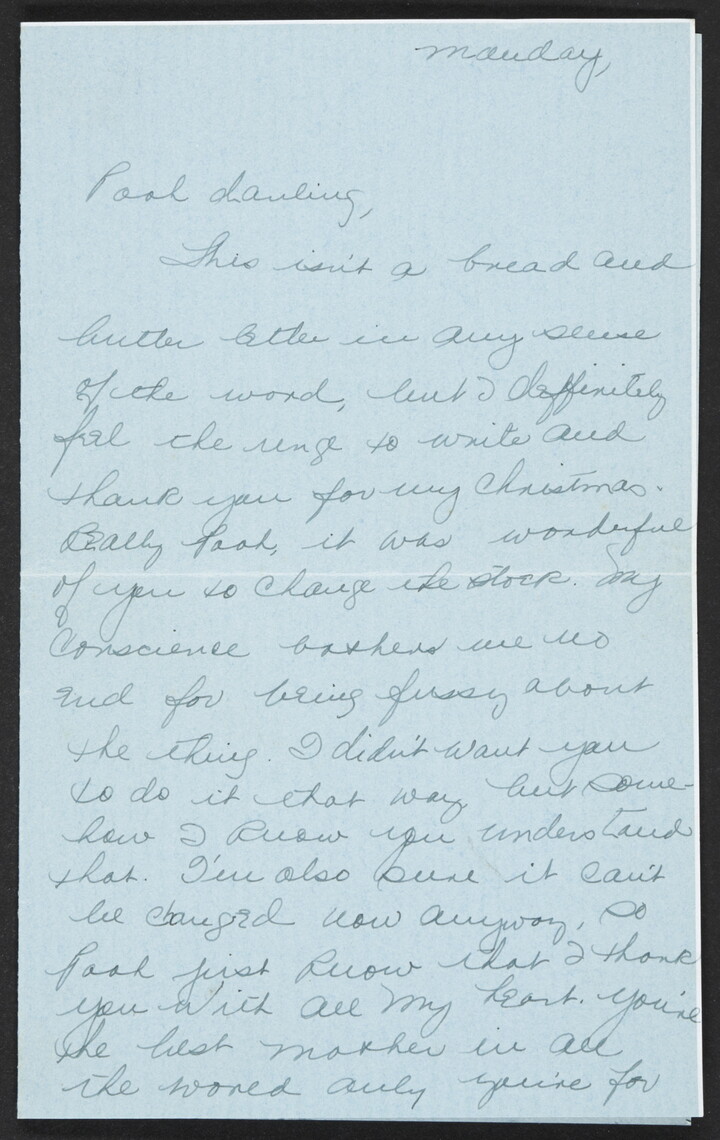 Monday,
Pooh darling,
This isn't a bread and
butter letter in any sense
of the word, but I deffinitely
feel the urge to write and
thank you for my Christmas.
Really Pooh, it was wonderful
of you to change the stock. My
conscience bothers me no
end for being fussy about
the thing. I didn't want you
to do it that way but some-
how I know you understand
that. I'm also sure it can't
be changed now anyway, so
Pooh just know that I thank
you with all my heart. You're
the best mother in all
the world only you're for